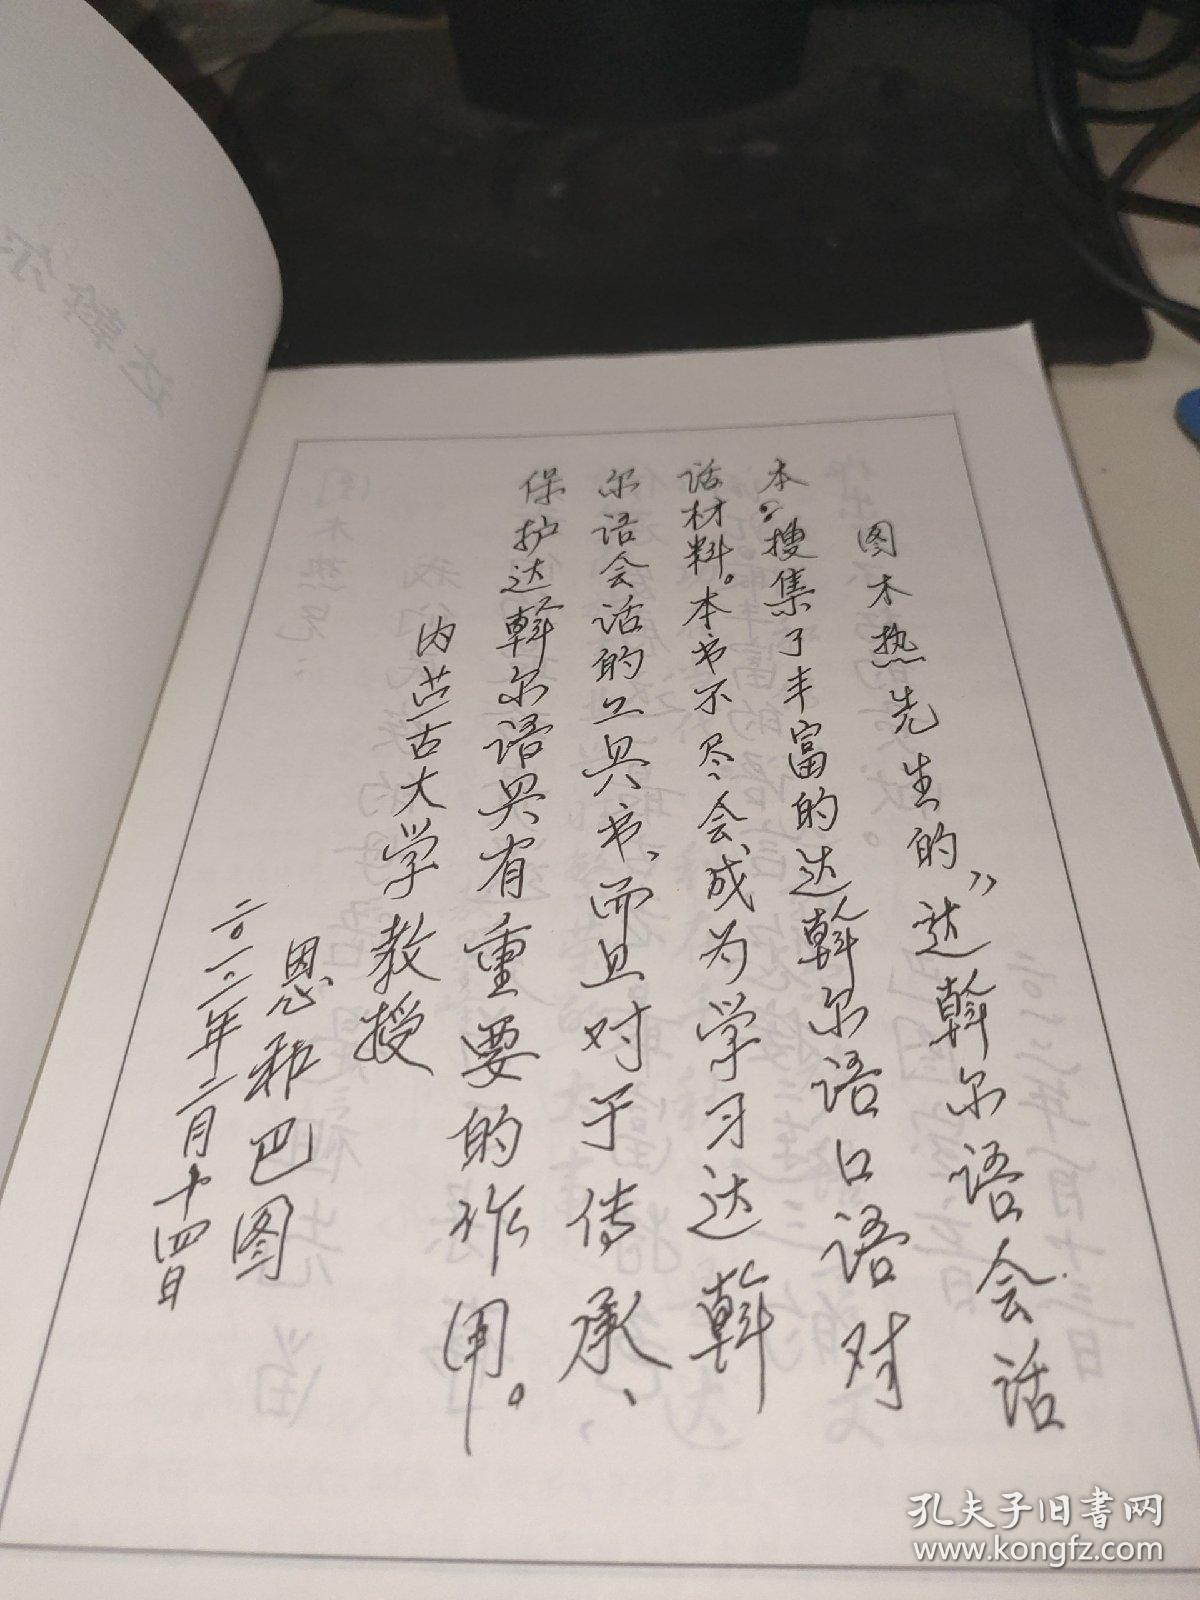 图木热先生的“达斡尔语会话
本”搜集了丰富的达斡尔语口语对
话材料。本书不尽会成为学习达斡
尔语会话的工具书、而且对于传承、
保护达斡尔语具有重要的作用。
内蒙古大学教授
恩和巴图
二〇一二年二月十四日
达斡尔
孔夫子旧书网
www.kongfz.com